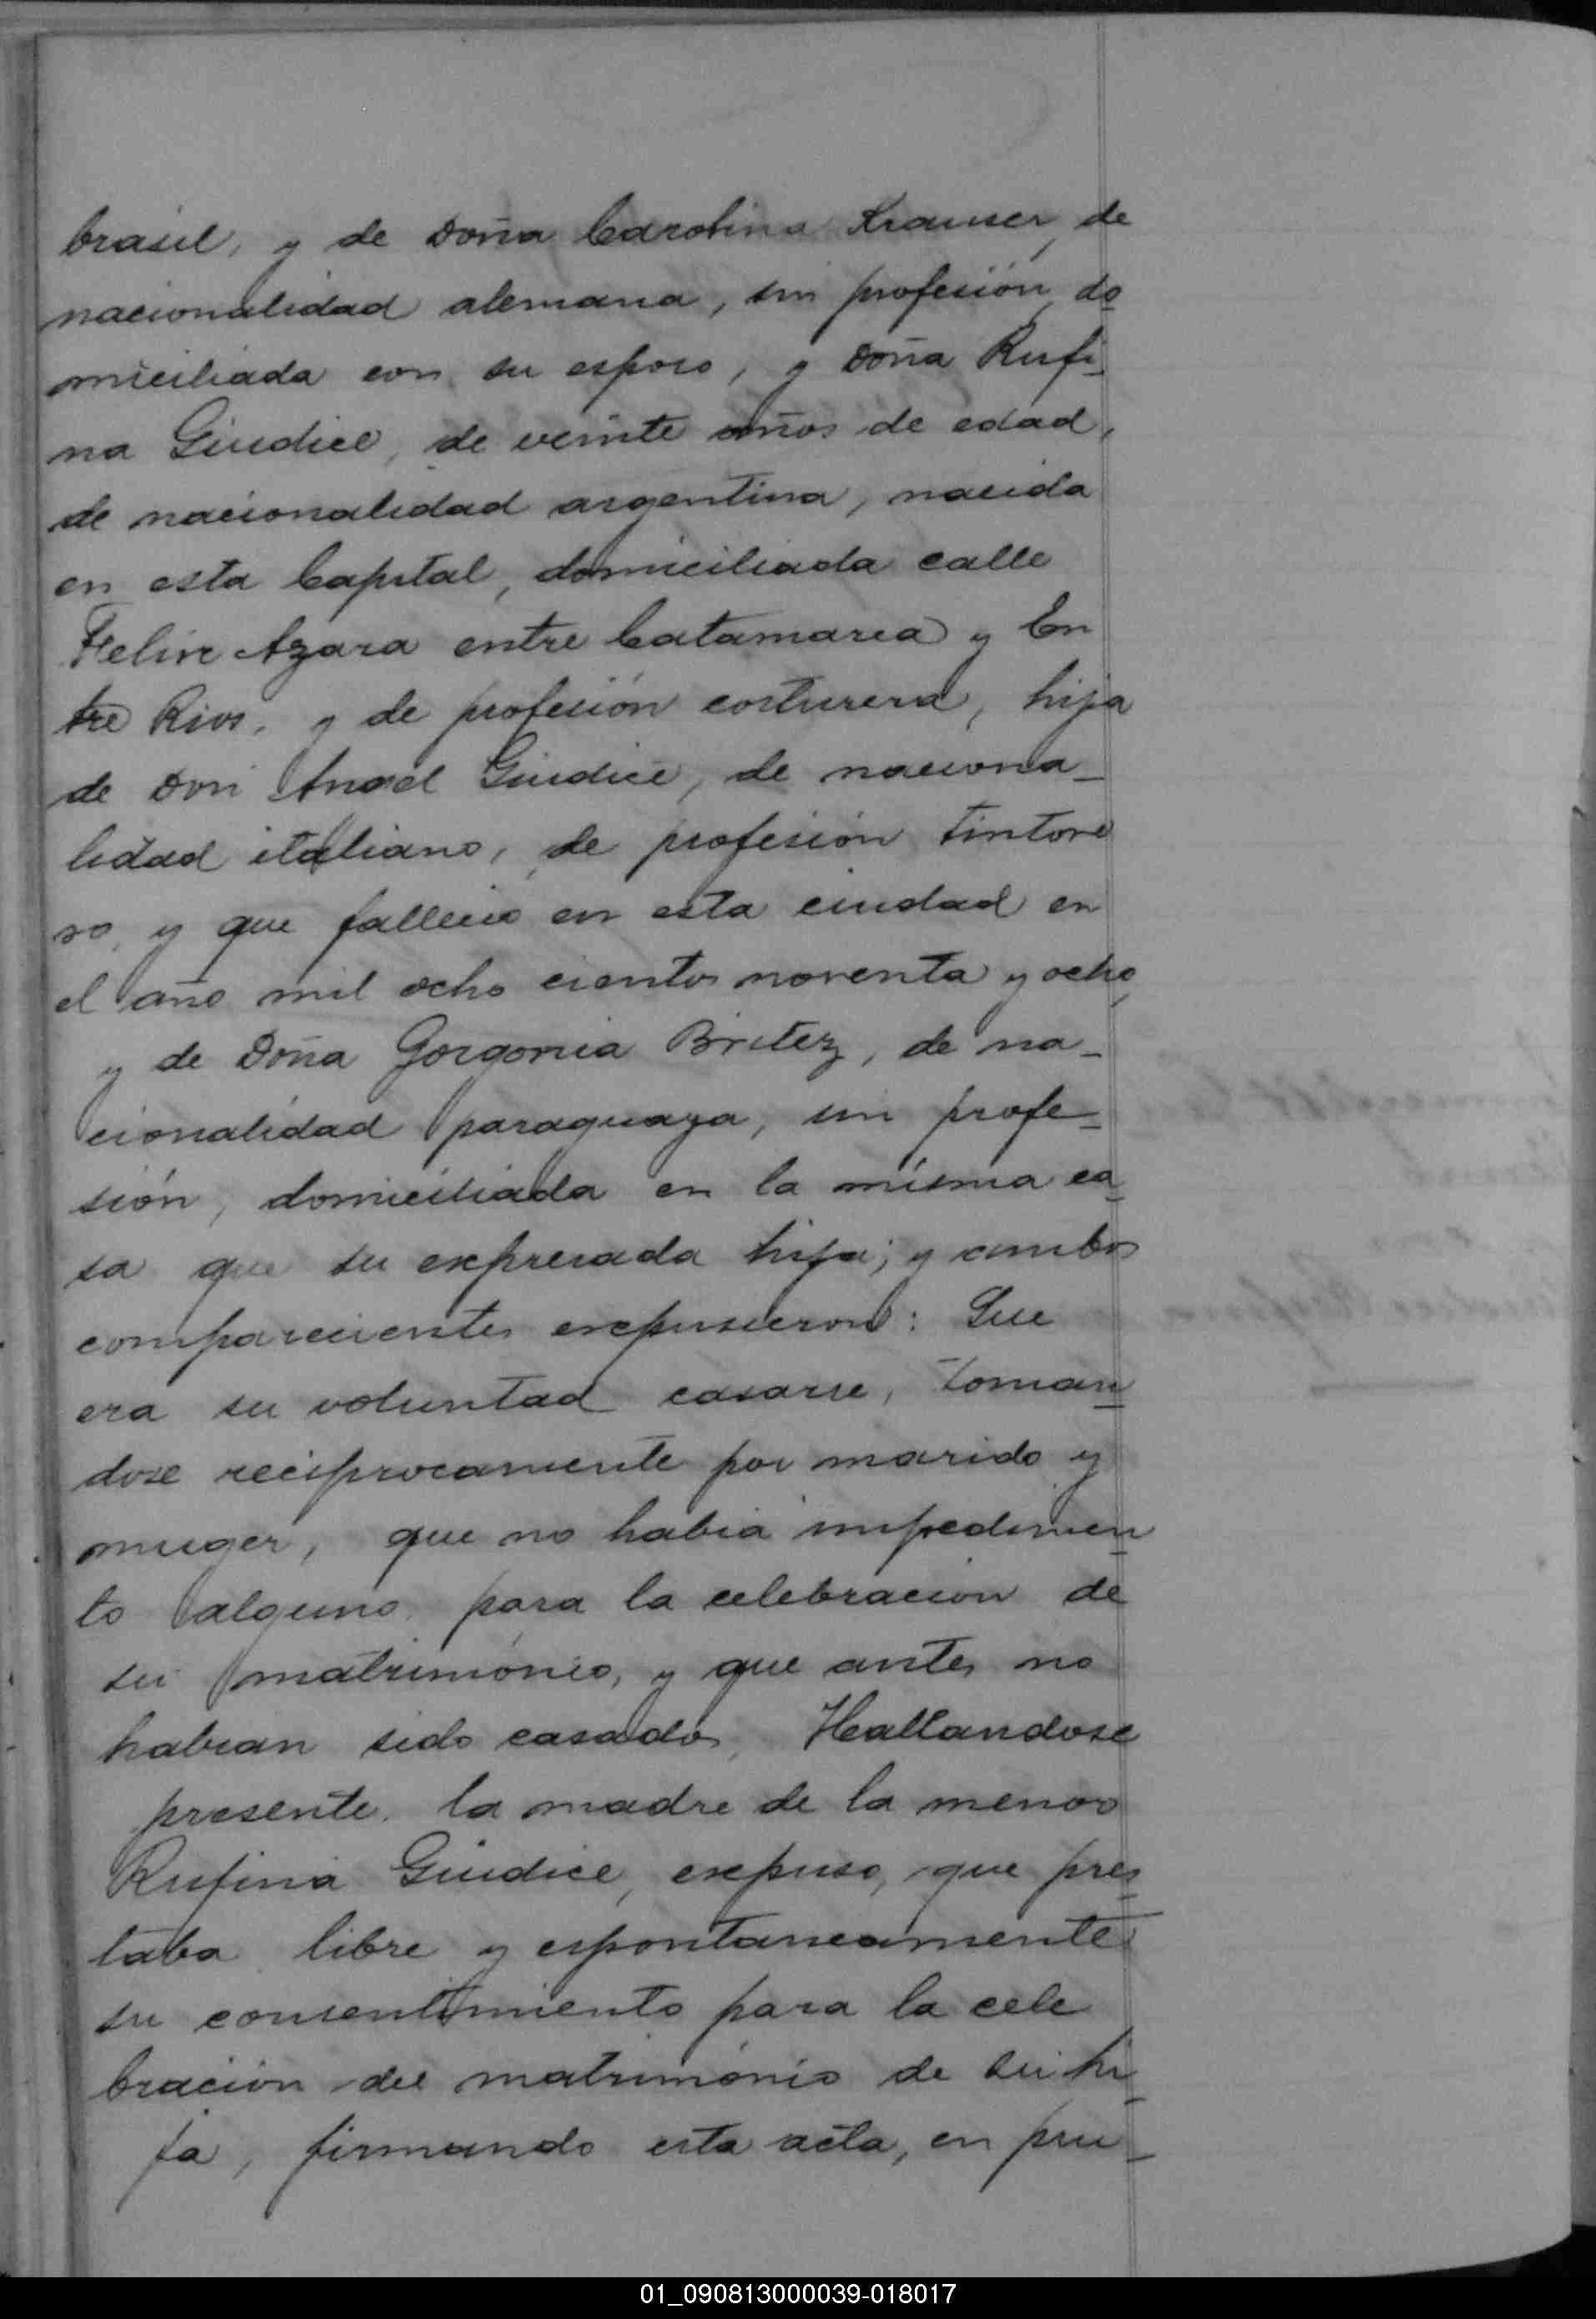 brasil, y de Doña Carolina Krauser, de
nacionalidad alemana, sin profesión, do
miciliada con su esposo, y Doña Rufi_
na Giudice, de veinte años de edad,
de nacionalidad argentina, nacida
en esta Capital, domiciliada calle
Felix Azara entre Catamarca y En
tre Rios, y de profesión costurera, hija
de Don Angel Giudice, de naciona_
lidad italiano, de profesión tintore
ro, y que falleció en esta ciudad en
el año mil ocho cientos noventa y ocho,
y de Doña Gorgonia Britez, de na_
cionalidad paraguaya, sin profe_
sión, domiciliada en la misma ca_
sa que su expresada hija; y ambos
comparecientes expusieron: Que
era su voluntad casarse, toman_
dose reciprocamente por marido y
muger, que no habia impedimen_
to alguno para la celebración de
su matrimónio, y que antes no
habian sido casados, Hallandose
presente, la madre de la menor
Rufina Giudice, expuso, que pres_
taba libre y espontaneamente
su consentimiento para la cele
bración del matrimónio de su hi_
ja, firmando esta acta, en pru_
01_090813000039-018017